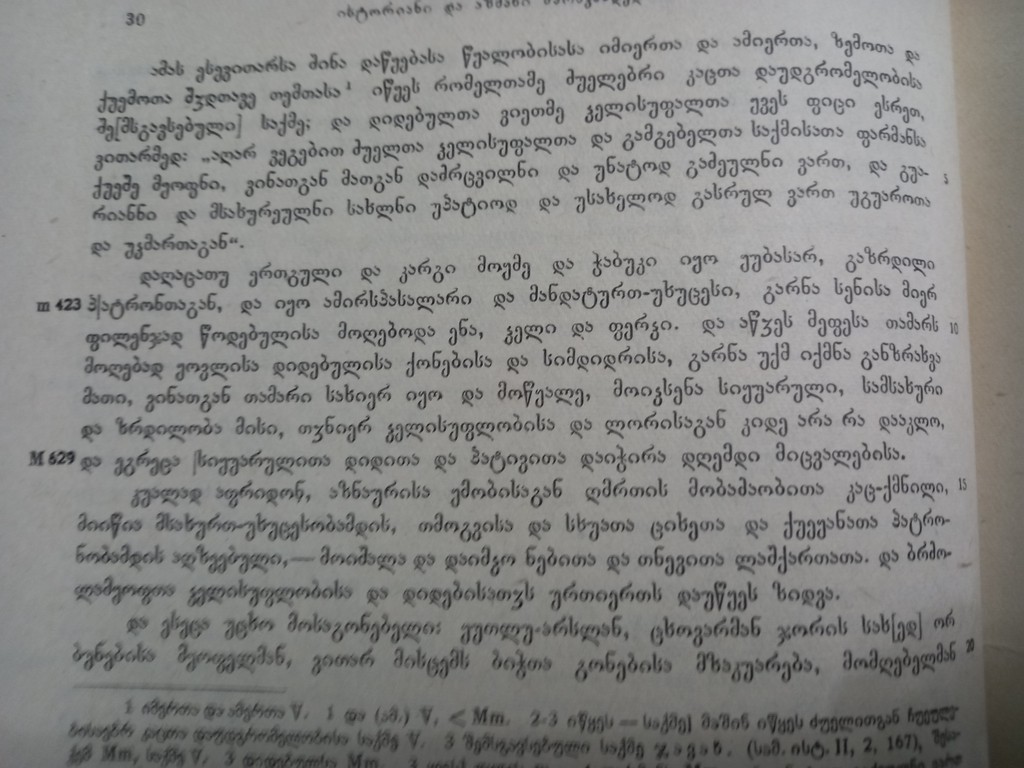 30 ისტორიანი და აზმანი
ამას ესევითარსა შინა დაწყებასა წყალობისასა იმიერთა და ამიერთა, ზემოთა და
ქუემოთა შჳდთავე თემთასა¹ იწყეს რომელთამე ძუელებრი კაცთა დაუდგრომელობისა
შე[მსგავსებული] საქმე; და დიდებულთა ვიეთმე ჴელისუფალთა ყვეს ფიცი ესრეთ,
ვითარმედ: „აღარ ვეგებით ძუელთა ჴელისუფალთა და გამგებელთა საქმისათა ფარმანსა
ქუეშე მყოფნი, ვინათგან მათგან დამრცვილნი და უნატოდ გაძეულნი ვართ, და გუა- 5
რიანნი და მსახურეულნი სახლნი უპატიოდ და უსახელოდ გასრულ ვართ უგუაროთა
და უჴმართაგან“.
დაღაცათუ ერთგული და კარგი მოყმე და ჭაბუკი იყო ყუბასარ, გაზრდილი
m 423 პ|ატრონთაგან, და იყო ამირსპასალარი და მანდატურთ-უხუცესი, გარნა სენისა მიერ
ფილენჯად წოდებულისა მოღებოდა ენა, ჴელი და ფერჴი. და აწჳეს მეფესა თამარს 10
მოღებად ყოვლისა დიდებულისა ქონებისა და სიმდიდრისა, გარნა უქმ იქმნა განზრახვა
მათი, ვინათგან თამარი სახიერ იყო და მოწყალე, მოიჴსენა სიყუარული, სამსახური
და ზრდილობა მისი, თჳნიერ ჴელისუფლობისა და ლორისაგან კიდე არა რა დააკლო,
M 629 და ეგრეცა |სიყუარულითა დიდითა და პატივითა დაიჭირა დღემდი მიცვალებისა.
კუალად აფრიდონ, აზნაურისა ყმობისაგან ღმრთის მობაძაობითა კაც-ქმნილი, 15
მიიწია მსახურთ-უხუცესობამდის, თმოგვისა და სხუათა ციხეთა და ქუეყანათა პატრო-
ნობამდის აღზევებული,— მოიშალა და დაიმჴო ნებითა და თნევითა ლაშქართათა. და ბრძო-
ლამყოფთა ჴელისუფლობისა და დიდებისათჳს ურთიერთს დაუწყეს ზიდვა.
და ესეცა უცხო მოსაგონებელი: ყუთლუ-არსლან, ცხოვარმან ჯორის სახ[ედ] ორ
ბუნებისა მყოფელმან, ვითარ მისცემს ბიჭთა გონებისა მზაკუარება, მომღებელმან 20
1 იმერთა და ამერთა V. 1 და (ამ.) V, < Mm. 2-3 იწყეს — საქმე] მაშინ იწყეს ძუელითგან
საქმე V. 3 შემსგავსებული საქმე ჯავახ. (სამ. ისტ. II, 2, 167),
Mm, საქმე V. 3 დიდებულსა Mm.